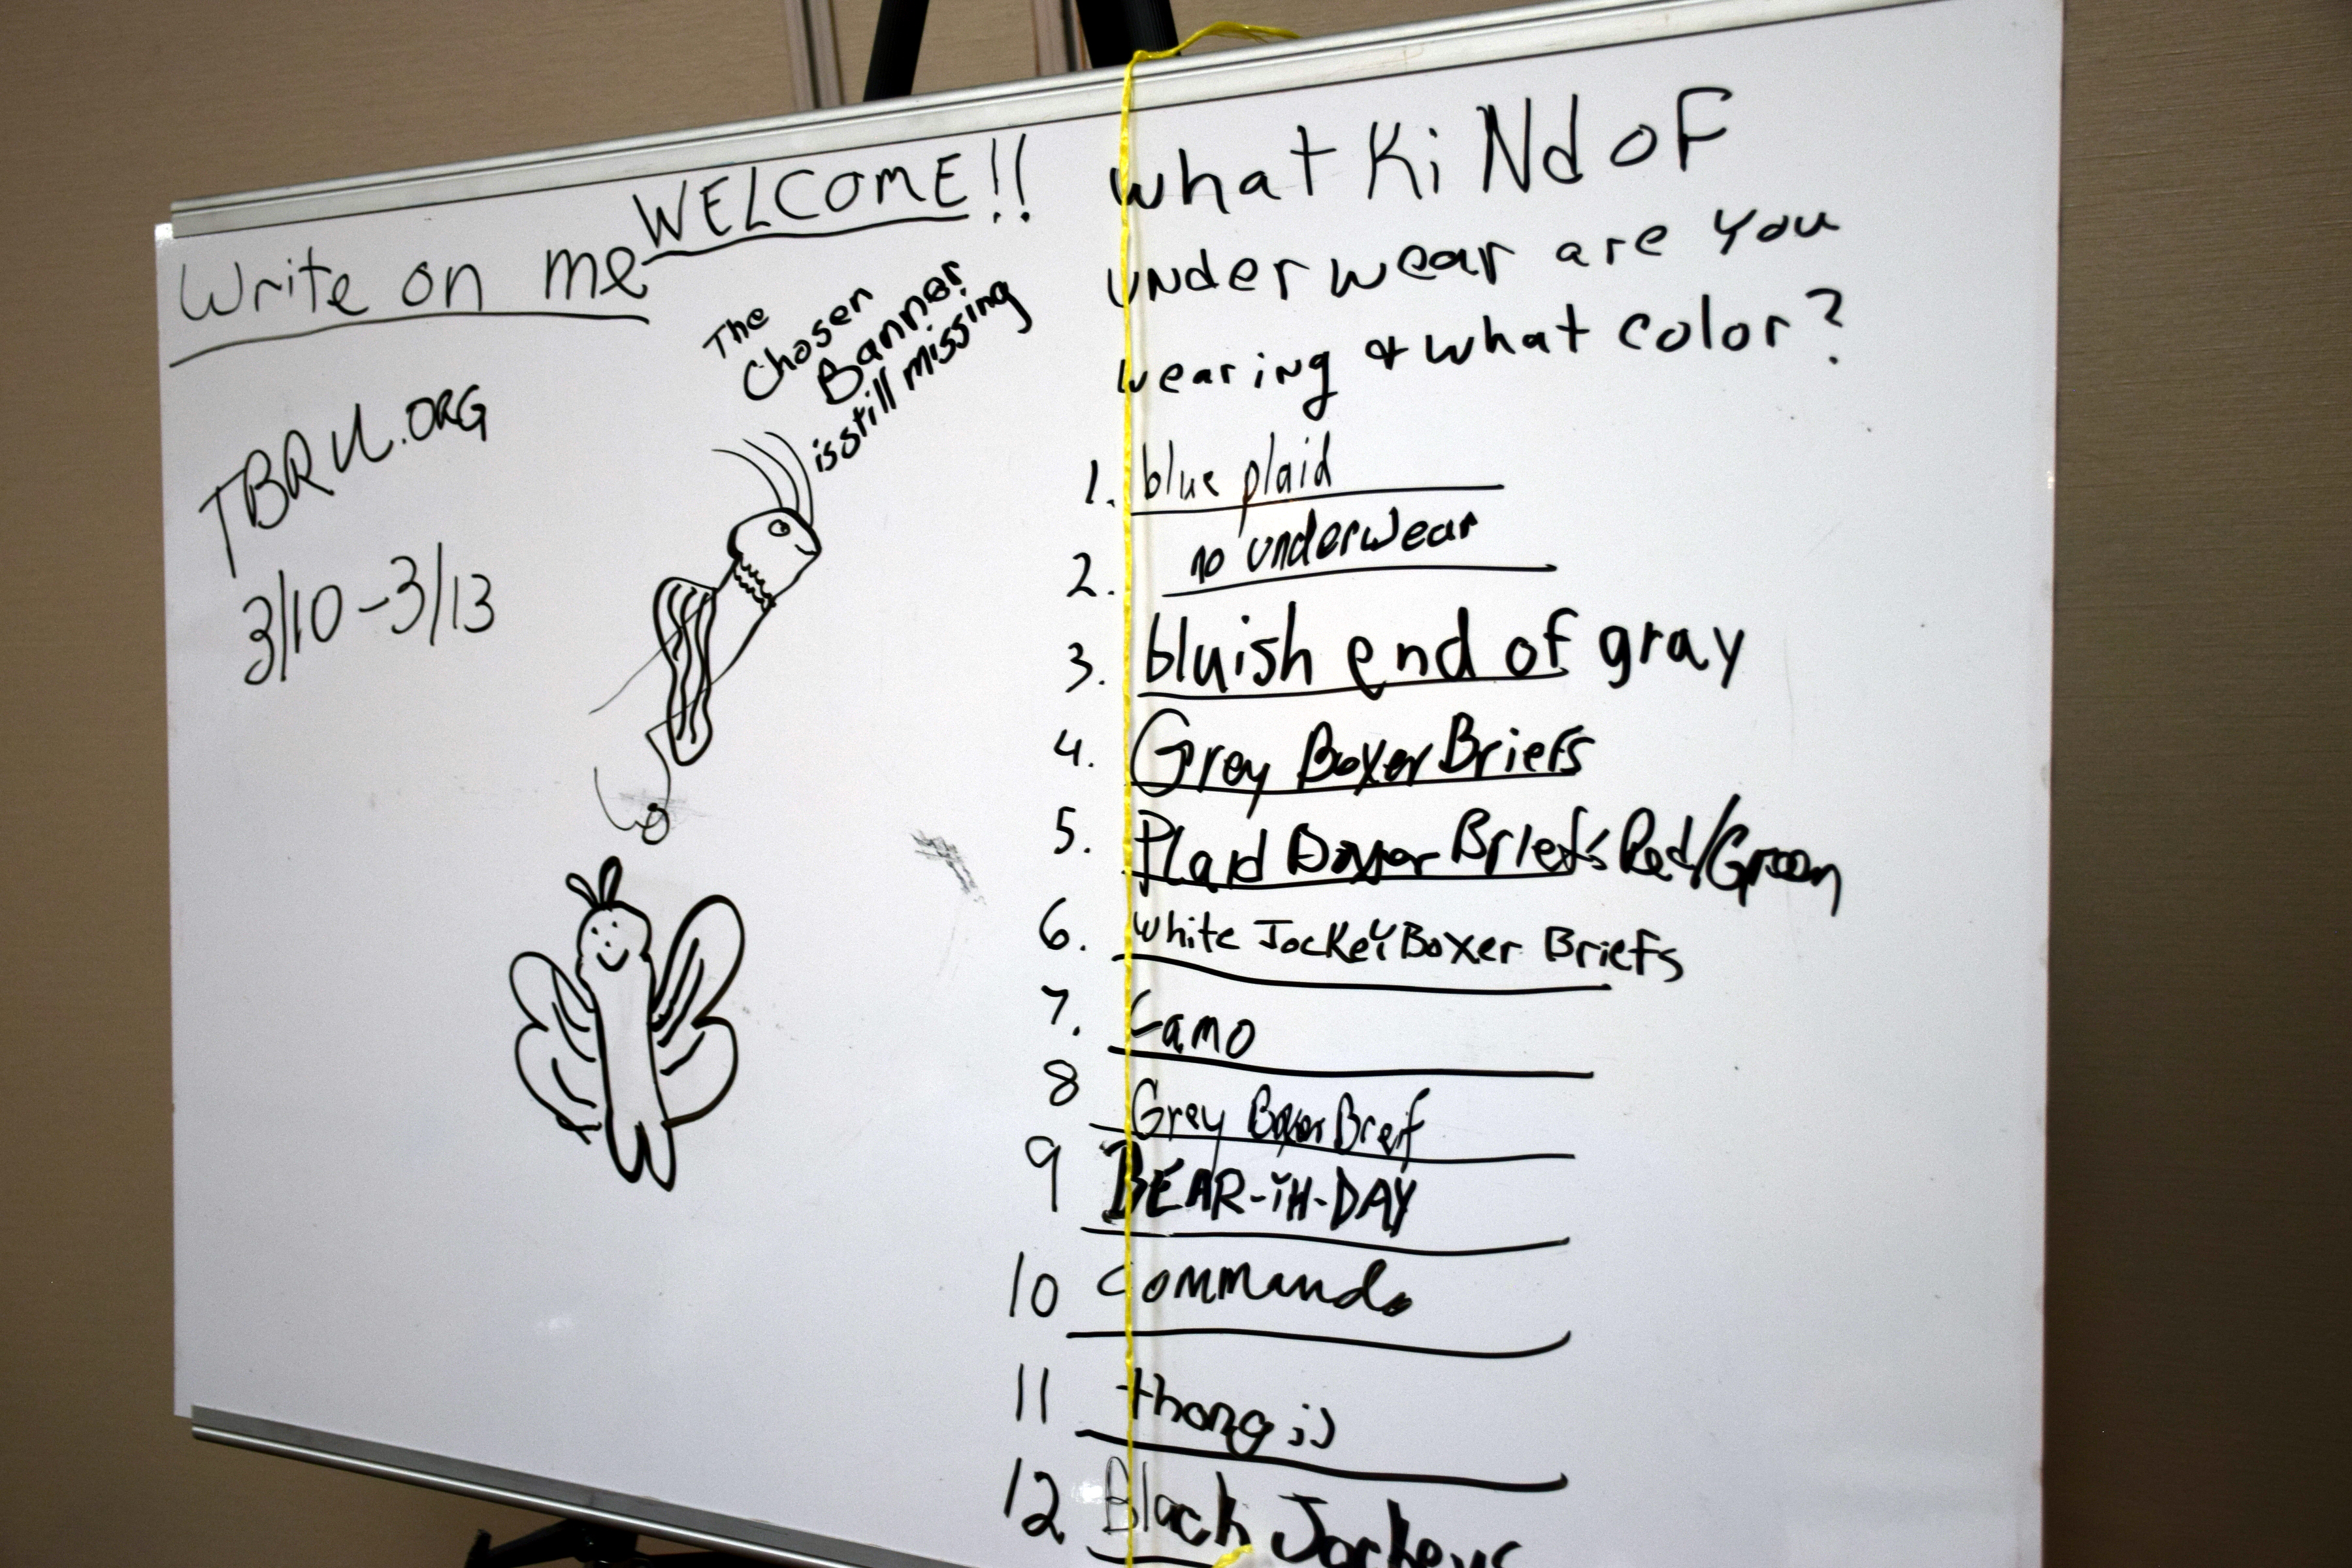 WELCOME!!
Write on me
The
Chosen
Banner
is still missing
TBRU.ORG
3/10-3/13
what KiNd oF
underwear are you
wearing & what color?
1. blue plaid
2. no underwear
3. bluish end of gray
4. Grey Boxer Briefs
5. Plaid Boxer Briefs Red/Green
6. white Jockey Boxer Briefs
7. Camo
8 Grey Boxer Breif
9 BEAR-iH-DAY
10 Commando
11 thong ;)
12 Black Jockeys